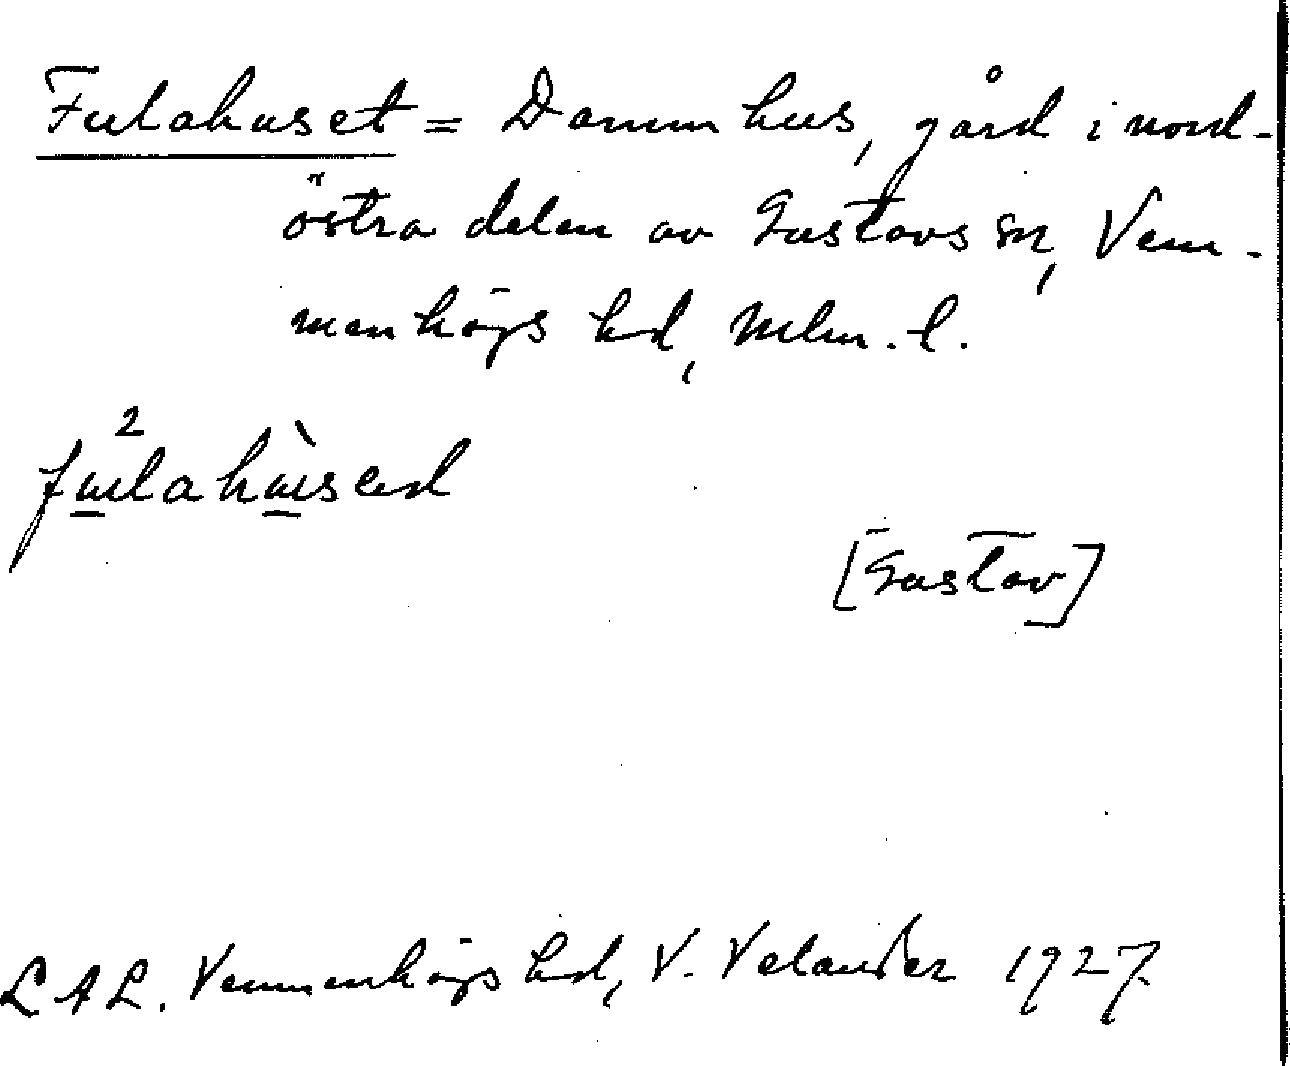 Fulahuset = Dammhus, gård i nord-
östra delen av Gustavs sn, Vem-
menhögs hd, Mlm. l.
2
fulahùsed
[Gustav]
LAL. Vemmenhögs hd, V. Velander 1927.